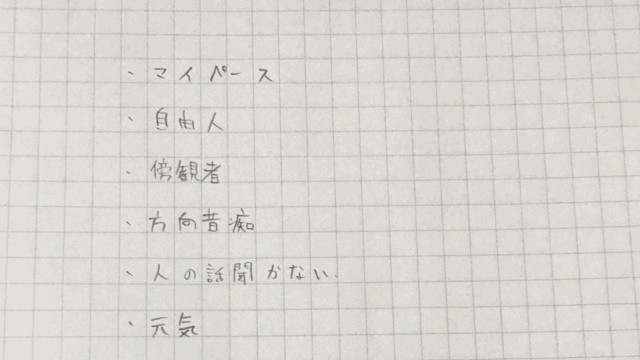 ・マイペース
・自由人
・傍観者
・方向音痴
・人の話聞かない.
・元気